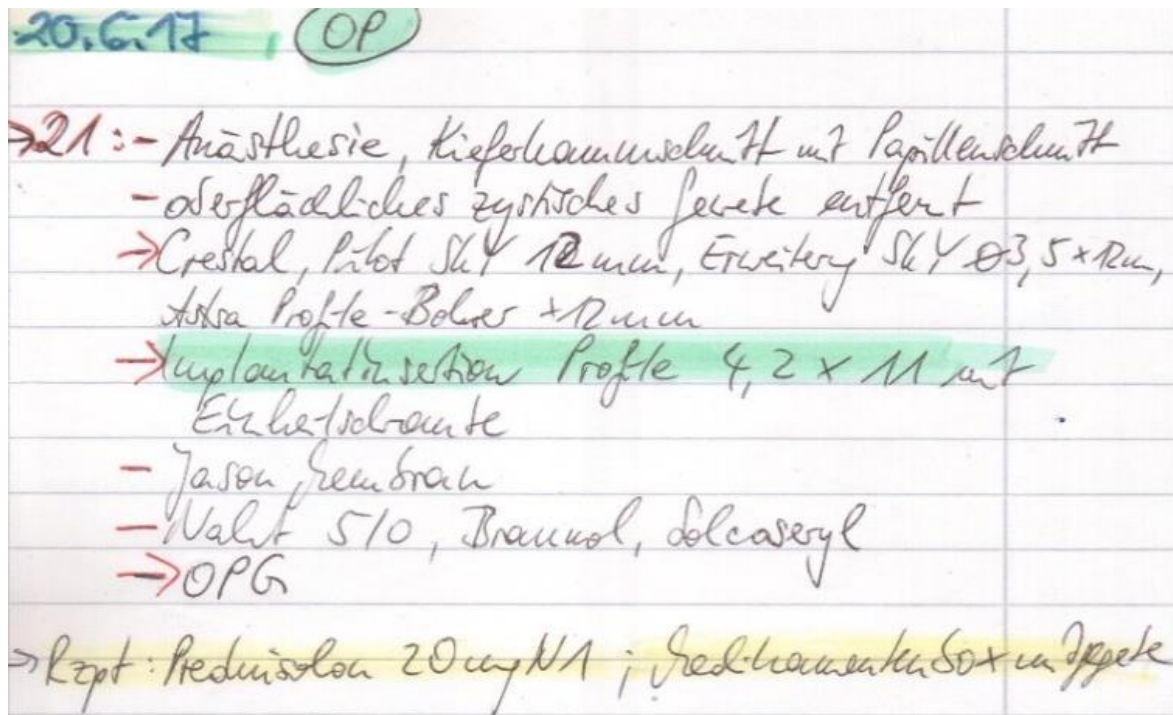 20.6.17 OP
→21: - Anästhesie, Kieferkammschnitt mit Papillenschnitt
- oberflächliches zystisches Gewebe entfernt
→ Crestal, Pilot SKY 12 mm, Erweiterung SKY Ø3,5 x 12mm,
Astra Profile-Bohrer x12 mm
→ Implantatinsertion Profile 4,2 x 11 mit
Einheilschraube
- Jason Membran
- Naht 5/0, Braunol, Solcoseryl
→ OPG
→ Rzpt: Prednisolon 20 mg N1 ; Medikamentenbox